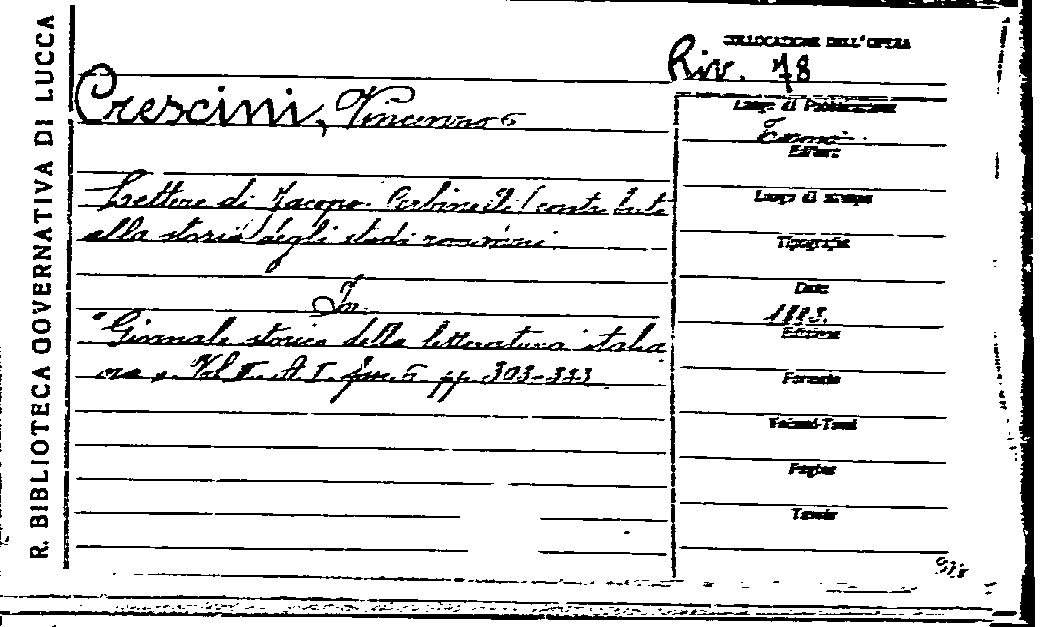 R. BIBLIOTECA GOVERNATIVA DI LUCCA
COLLOCAZIONE DELL'OPERA
Riv. 78
Crescini, Vincenzo
Lettere di Jacopo Corbinelli (contributo
alla storia degli studi romanzi
In
"Giornale storico della letteratura italia
na". Vol II. A. I. fasc. 6 pp. 303-333
Luogo di Pubblicazione
Torino
Editore
Luogo di stampa
Tipografia
Data
1883.
Edizione
Formato
Volumi-Tomi
Pagine
Tavole